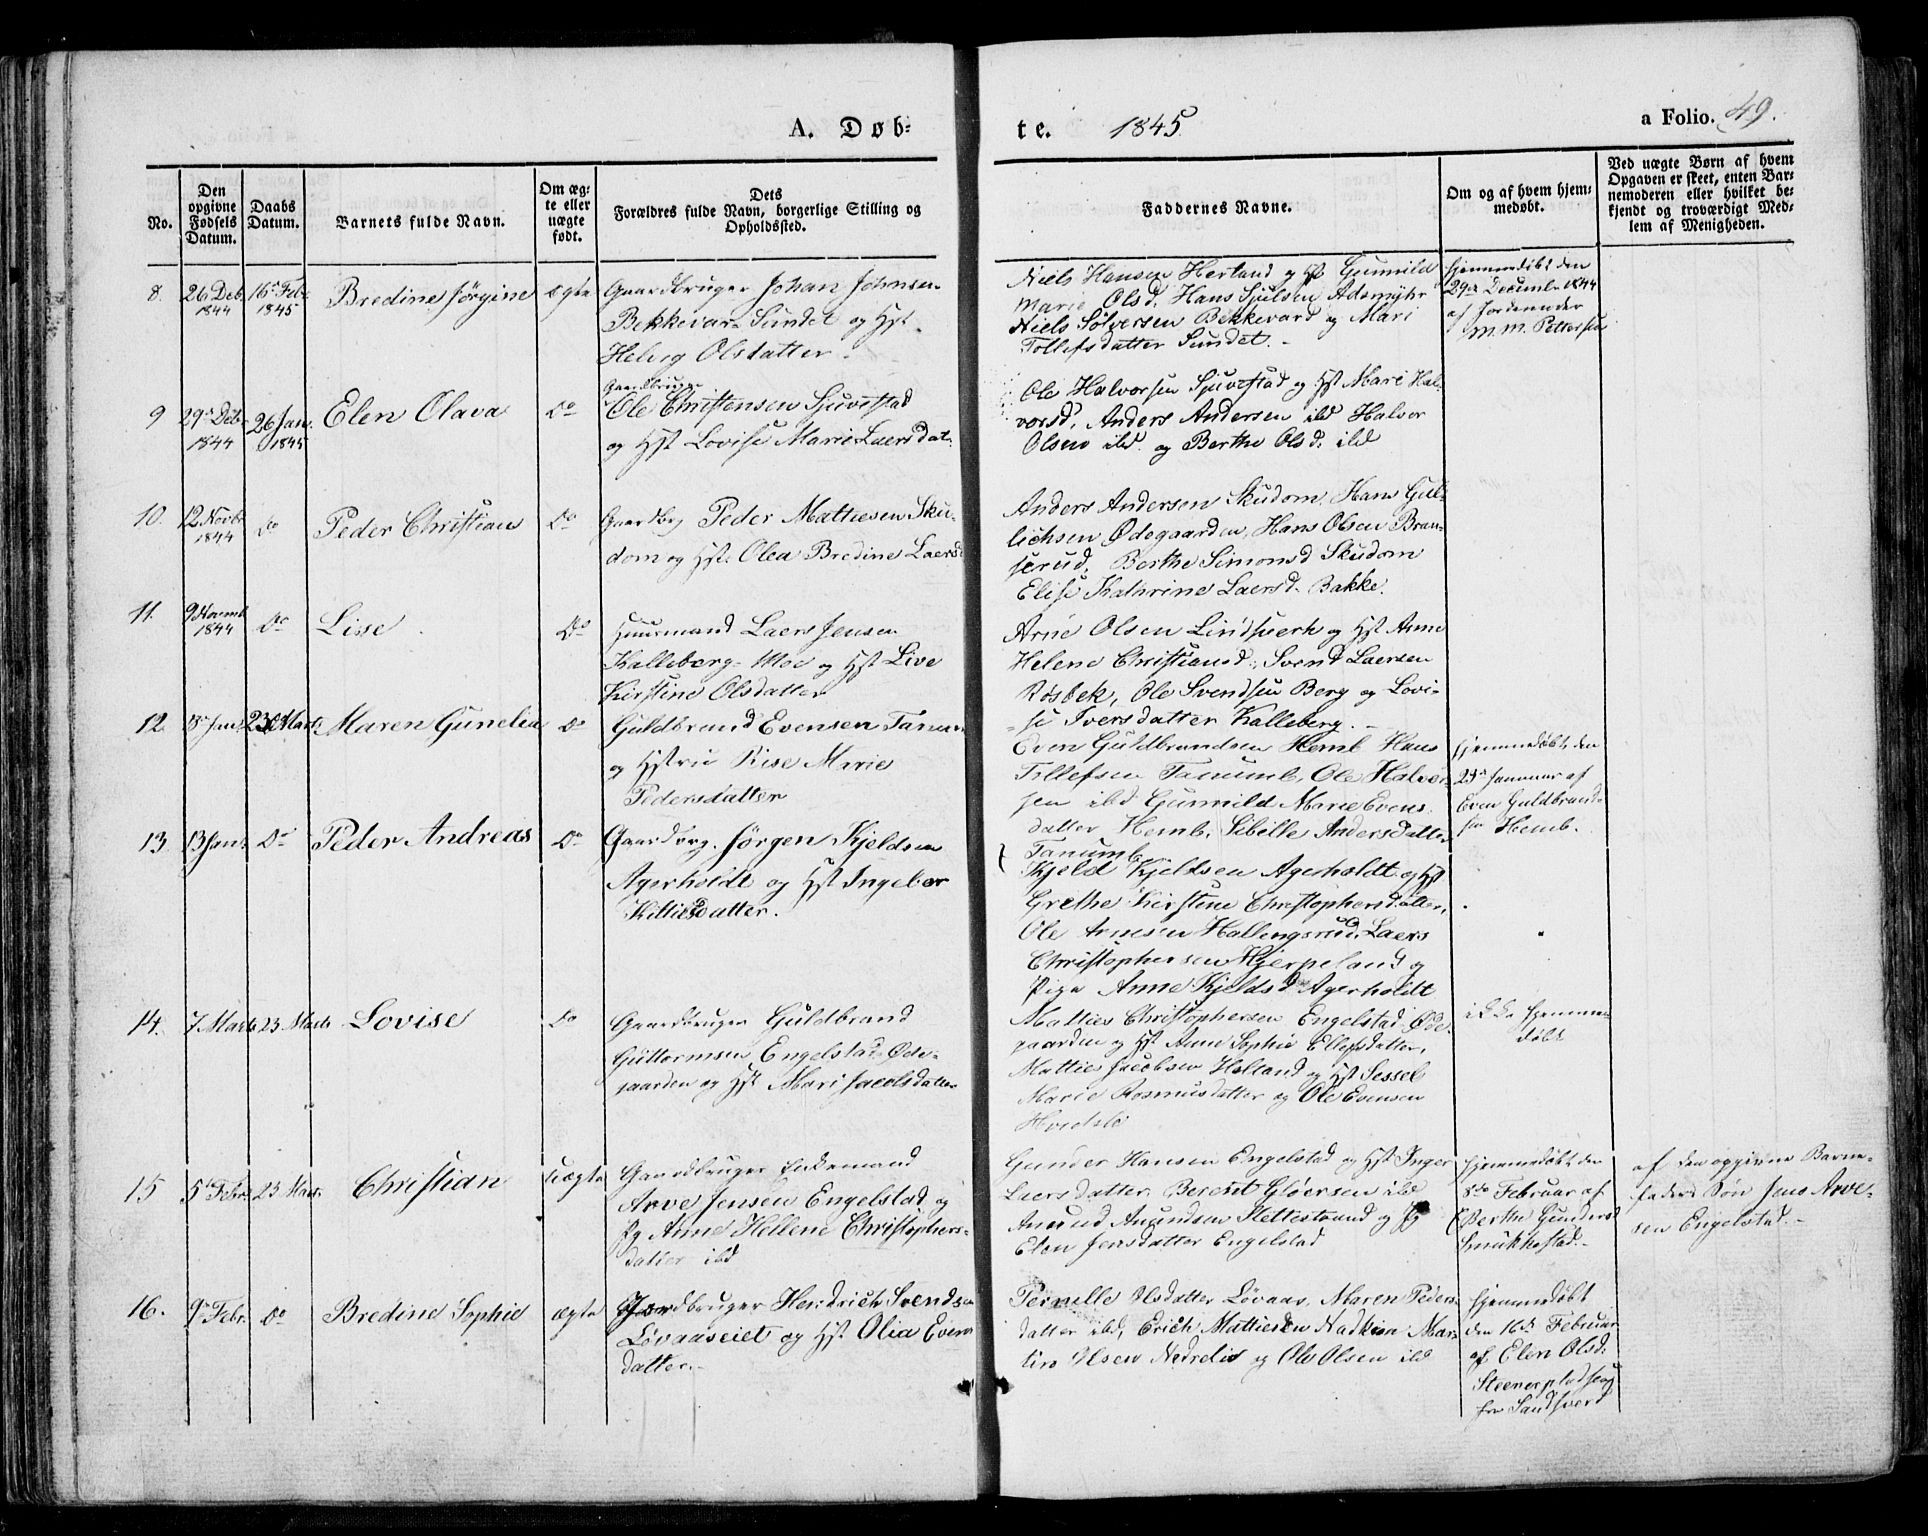 A. Døb-
te. 1845 a Folio. 49.
No.
Den opgivne Fødsels Datum.
Daabs Datum.
Barnets fulde Navn.
Om æg-
te eller
uægte
født.
Dets
Forældres fulde Navn, borgerlige Stilling og
Opholdssted.
Faddernes Navne.
Om og af hvem hjem-
medøbt.
Ved uægte Børn af hvem
Opgaven er skeet, enten Bar-
nemoderen eller hvilket be-
kjendt og troværdigt Med-
lem af Menigheden.
8. 26 Deb. 1844 16 Feb. 1845 Bredine Jørgine ægte
Gaardbruger Johan Johnsen
Bekkevar-Sundet og Hst.
Helvig Olsdatter.
Niels Hansen Hertand og Hst Gunnild
Marie Olsd. Hans Sjulsen Adsmyhr
Niels Sølversen Bekkevard og Mari
Tollefsdatter Sundet.
hjemmedøbt den
29de Decembr 1844
af Jordemoder
M. M. Pettersen
9 29 Deb. 1844 26 Jan. 1845 Elen Olava Do
Gaardbruger
Ole Christensen Sjuvestad
og Hst Lovise Marie Laersdat.
Ole Halvorsen Sjuvestad og Hst Mari Hal-
vorsd. Anders Andersen ibd Halvor
Olsen ibd. og Berthe Olsd. ibd
10. 12 Novbr 1844 Do Peder Christian Do
Gaardbrg Peder Mathiesen Sku-
dom og Hst. Olea Bredine Laersd
Anders Andersen Skudom, Hans Gul-
lichsen Ødegaarden, Hans Olsen Bran-
serud. Berthe Simonsd Skudom
Elise Kathrine Laersd. Bakke.
11. 9 Novemb 1844 Do Lisse Do
Huusmand Laers Jensen
Kalleberg-Moe og Hst Live
Kirstine Olsdatter
Arne Olsen Lindsverk og Hst Anne
Helene Christiansd., Svend Laersen
Røsbek, Ole Svendsen Berg og Lovi-
se Iversdatter Kalleberg.
12. 8 Jan. 23 Marts Maren Gunelia Do
Guldbrand Evensen Tanum
og Hstru Kise Marie
Pedersdatter
Even Guldbrandsen Hemb Hans
Tollefsen Tanumb, Ole Halvor-
sen ibd Gunnild Marie Evens
datter Hemb, Sibille Andersdatter
Tanumb
hjemmedøbt den
23de Januar af
Even Guldbrand-
sen Hemb.
13. 13 Jan. Do Peder Andreas Do
Gaardbrg. Jørgen Kjeldsen
Agerholdt og Hst Ingebor
Kittilsdatter.
Kjeld Kjeldsen Agerholdt og Hst
Grethe Kirstine Christophersdatter,
Ole Arnesen Hallingsrud, Laers
Christophersen Hjerpeland og
Pige Anne Kjeldsd Agerholdt
14. 7 Marts 23 Marts Lovise Do
Gaardbruger Guldbrand
Guttormsen Engelstad-Øde-
gaarden og Hst Mari Jacobsdatter
Mathies Christophersen Engelstad-Øde-
gaarden og Hst Anne Sophie Ellefsdatter,
Mathie Jacobsen Holtand og Hst Sessel
Marie Rasmusdatter og Ole Evensen
Hvedale
ikke hjemme-
døbt
15 5 Febr. 23 Marts Christian uægte
Gaardbruger Enkemand
Arve Jensen Engelstad og
Pg Anne Hellene Christophers-
datter ibd
Gunder Hansen Engelstad og Hst Inger
Laersdatter. Berent Gløersen ibd
Amund Amundsen Slettestrand og Pg
Elen Jensdatter Engelstad
hjemmedøbt den
8de Februar af
Berthe Gundersd
Smukkestad.
af den opgivne Barne-
faders Søn Jens Arve-
sen Engelstad.
16. 9 Febr. Do Bredine Sophie ægte
Jordbruger Hendrich Svendsen
Løvaaseiet og Hst Olia Evens
datter.
Pernille Olsdatter Løvaas, Maren Peders-
datter ibd, Erich Mathiesen Nadkien Mar-
tin Olsen Nedrelis og Ole Olsen ibd
hjemmedøbt
den 16de Februar
af Elen Olsd.
Steenerpladseig
fra Sandsverd